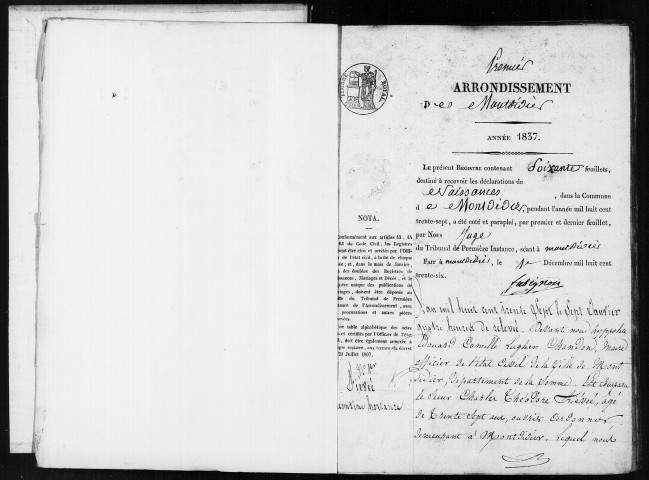 TIMBRE ROYAL
Premier
ARRONDISSEMENT
De Montdidier
ANNÉE 1837.
Le présent Registre contenant Soixante feuillets,
destiné à recevoir les déclarations de
Naissances, dans la Commune
de Montdidier, pendant l'année mil huit cent
trente-sept, a été coté et paraphé, par premier et dernier feuillet,
par Nous Juge
du Tribunal de Première Instance, séant à montdidier
Fait à montdidier, le 1er Décembre mil huit cent
trente-six.
NOTA.
Conformément aux articles 43, 44
du Code Civil, les Registres
être clos et arrêtés par l'Offi-
de l'état civil, à la fin de chaque
et, dans le mois de Janvier,
des doubles des Registres de
Naissances, Mariages et Décès, et le
registre unique des publications de
mariages, doivent être déposés au
du Tribunal de Première
de l'Arrondissement, avec
procurations et autres pièces
table alphabétique des actes
et certifiés par l'Officier de l'État
doit être également annexée à
registre, aux termes du décret
20 Juillet 1807.
L'an mil huit cent trente Sept le Sept Janvier
quatre heures de relevée, Devant nous hyppolite
Camille Chandon, Maire
officier de l'état Civil de la Ville de Mont
didier, département de la Somme. Est comparu
le Sieur Charles Théodore, âgé
de Trente Sept ans, ouvrier Cordonnier,
demeurant à Montdidier, lequel nous